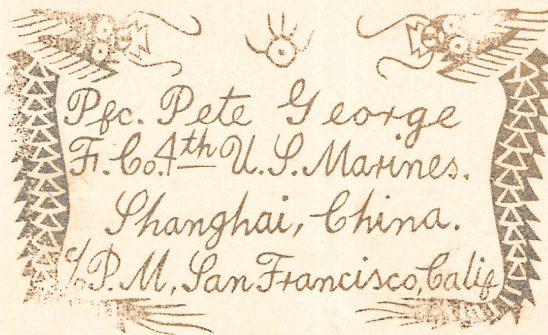 Pfc. Pete George
F. Co. 4th U.S. Marines.
Shanghai, China.
c/o P.M., San Francisco, Calif